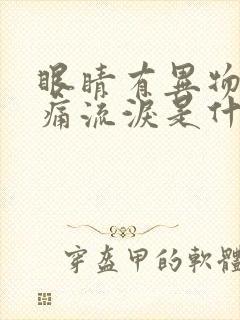 眼睛有異物
痛流淚是什
穿盔甲的軟體